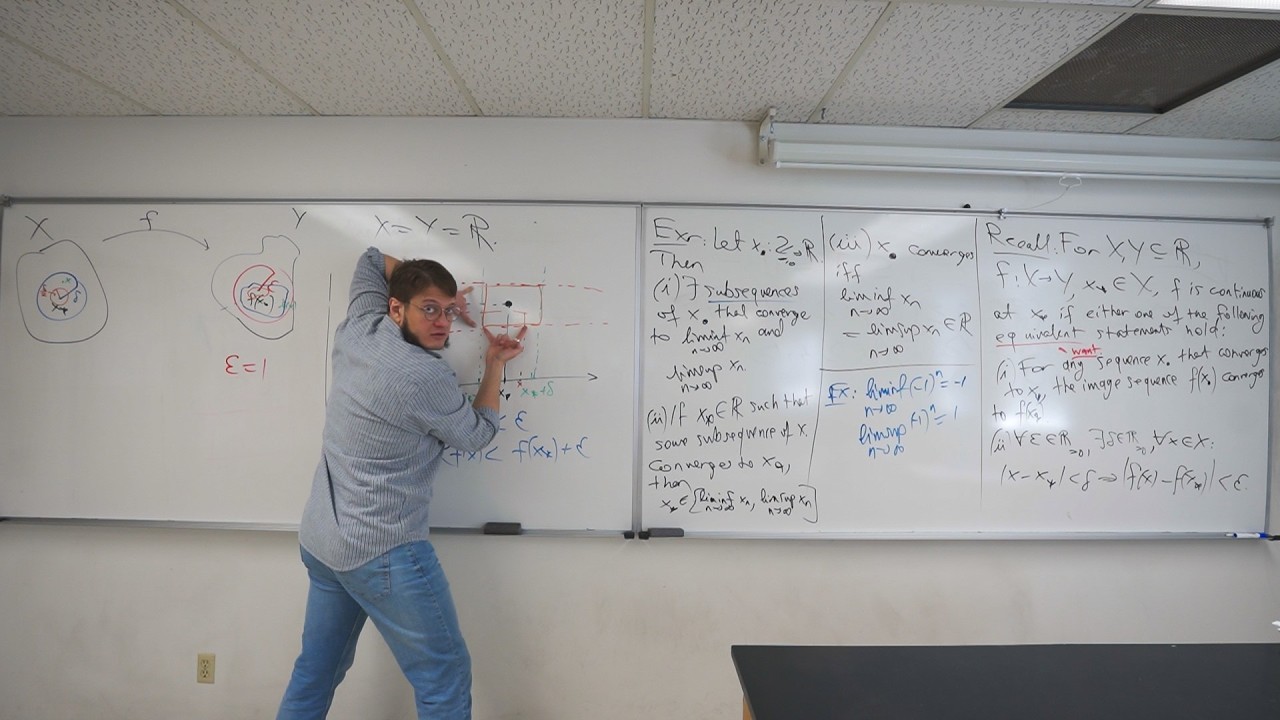 X
f
Y
f(x*)
ε=1
X=Y=ℝ.
x*
x
x*+δ
< ε
f(x) < f(x*)+ε
Exr: Let x•: ℤ≥0→ℝ
Then
(i) ∃ subsequences
of x• that converge
to liminf xₙ and
n→∞
limsup xₙ
n→∞
(ii) If x* ∈ ℝ such that
some subsequence of x•
converges to x*,
then
x* ∈ [liminf xₙ, limsup xₙ]
n→∞ n→∞
(iii) x• converges
iff
liminf xₙ
n→∞
= limsup xₙ ∈ ℝ
n→∞
Ex: liminf (-1)ⁿ = -1
n→∞
limsup (-1)ⁿ = 1
n→∞
Recall: For X,Y ⊆ ℝ,
f: X→Y, x* ∈ X, f is continuous
at x* if either one of the following
equivalent statements hold:
want
(i) For any sequence x• that converges
to x*, the image sequence f(x•) converges
to f(x*)
(ii) ∀ε∈ℝ>0, ∃δ∈ℝ>0, ∀x∈X:
|x-x*|<δ ⇒ |f(x)-f(x*)| < ε.